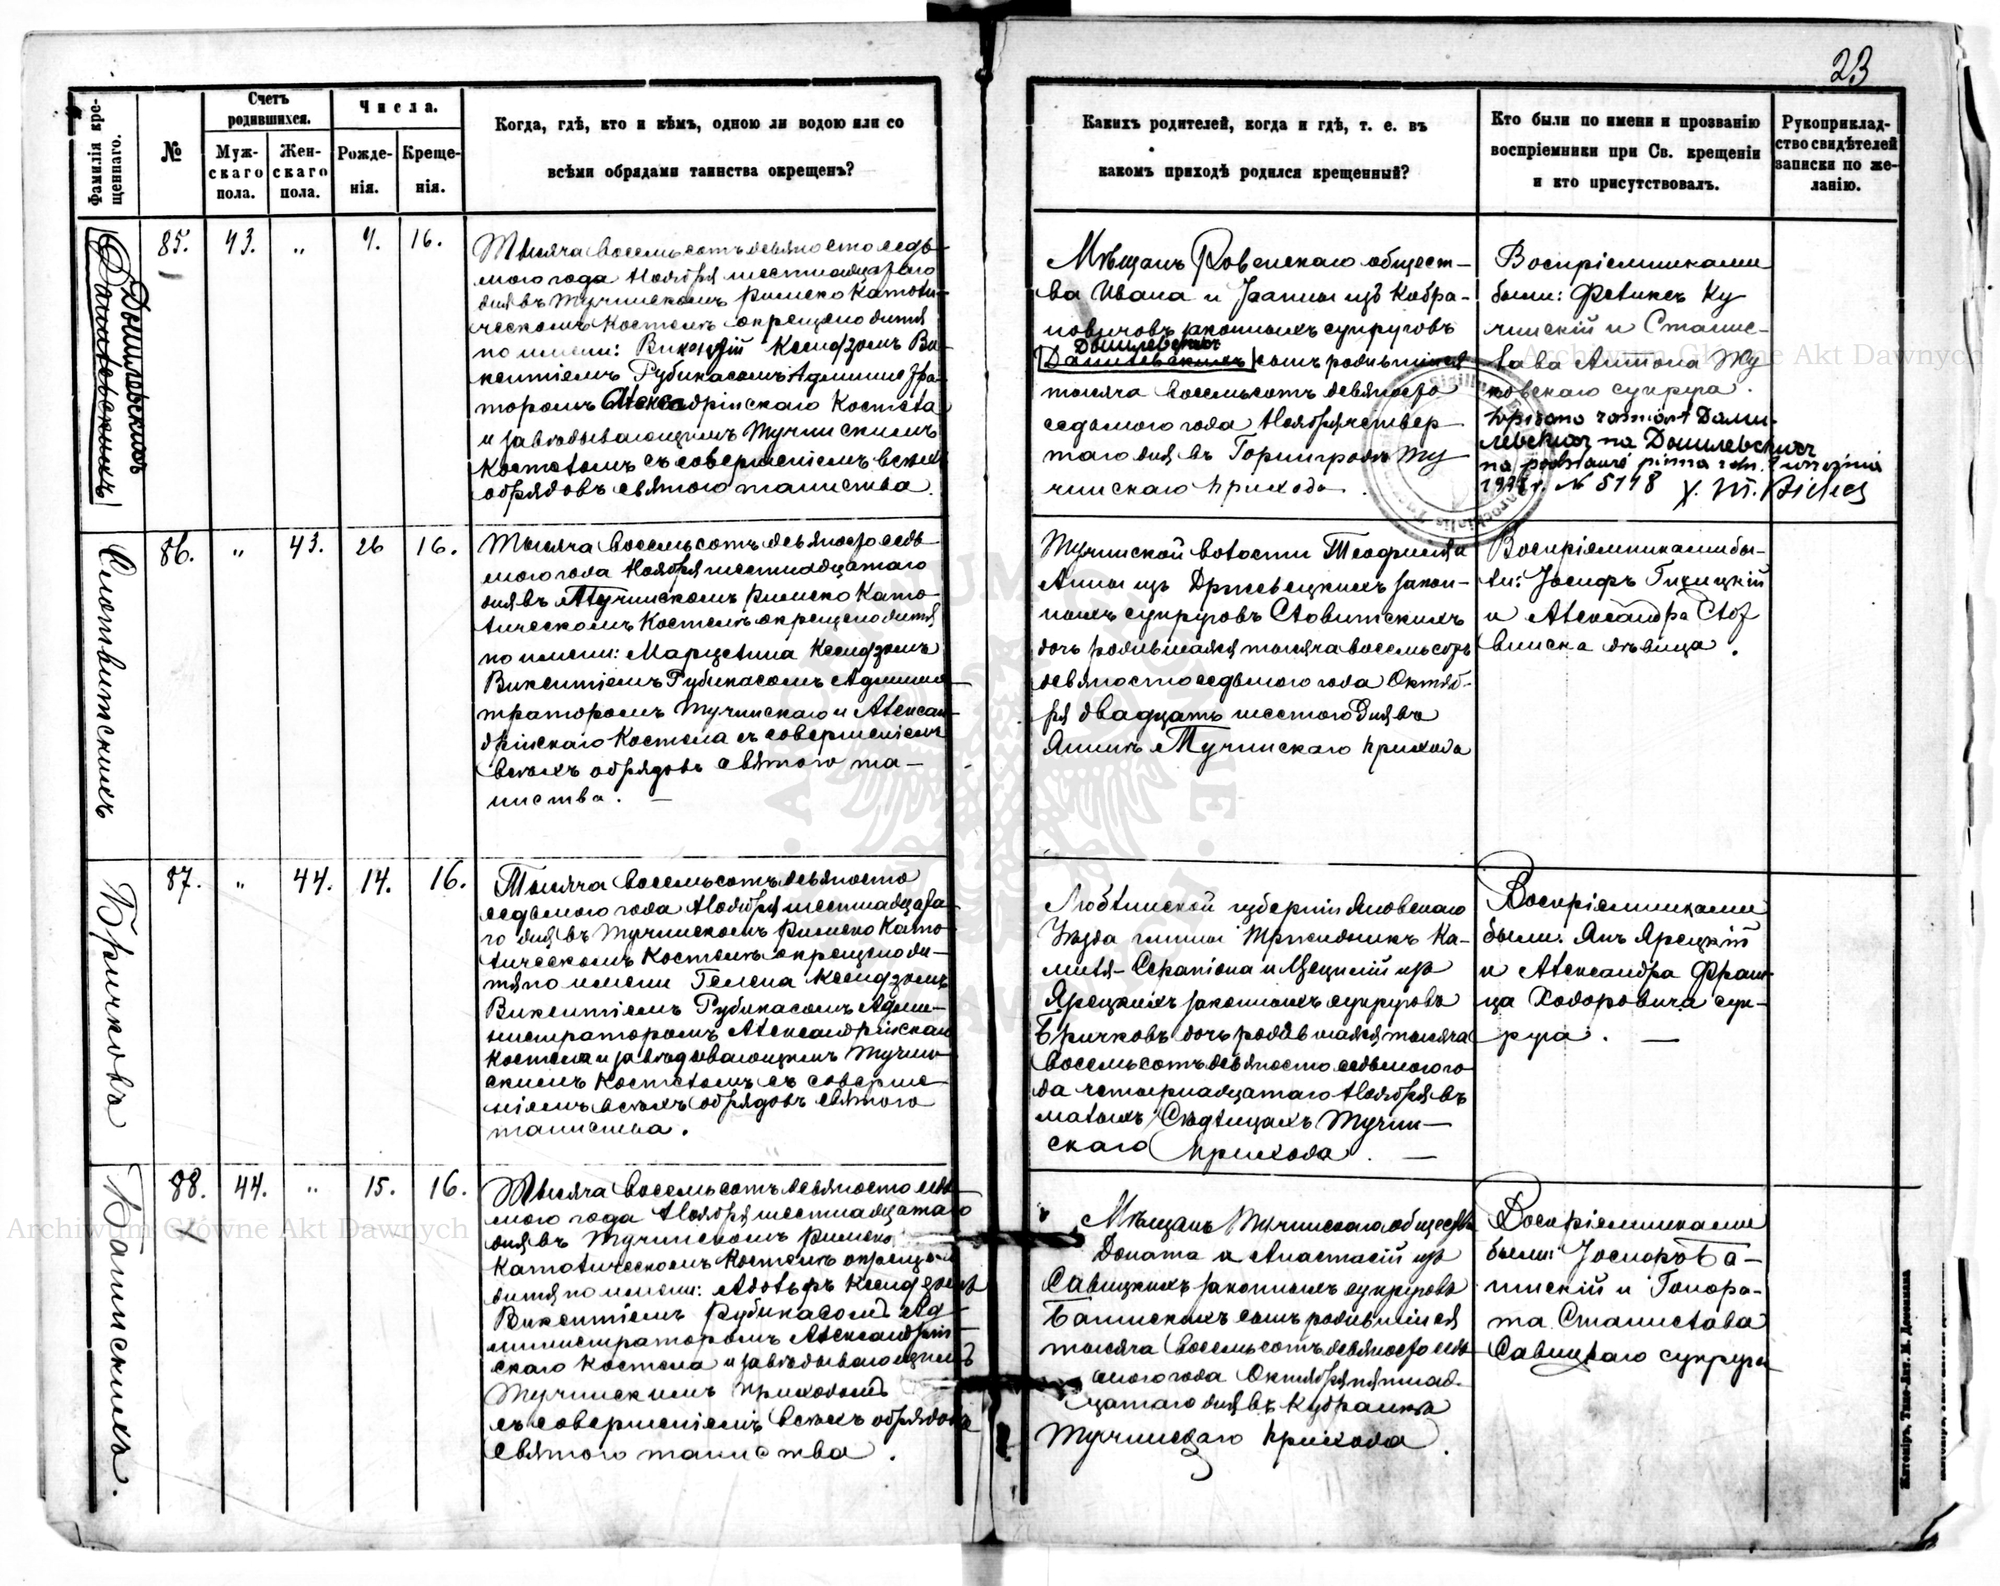 23
Фамилія кре-
щеннаго.
№
Счетъ
родившихся.
Муж-
скаго
пола.
Жен-
скаго
пола.
Числа.
Рожде-
нія.
Креще-
нія.
Когда, гдѣ, кто и кѣмъ, одною ли водою или со
всѣми обрядами таинства окрещенъ?
Какихъ родителей, когда и гдѣ, т. е. въ
какомъ приходѣ родился крещенный?
Кто были по имени и прозванію
воспріемники при Св. крещеніи
и кто присутствовалъ.
Рукоприклад-
ство свидѣтелей
записки по же-
ланію.
Дошлевскихъ
85. 43. „ 4. 16.
Тысяча восемьсотъ девяносто седь-
мого года Ноября шестнадцатаго
дня въ Тучинскомъ Римско Католи-
ческомъ Костелѣ окрещено дитя
по имени: Викентій Ксендзомъ Ви-
кентіемъ Рубикасомъ Админист тра-
торомъ Александрійскаго Костела
и завѣдывающимъ Тучинскимъ
Костеломъ съ совершеніемъ всѣхъ
обрядовъ святого таинства.
Мѣщанъ Ровенскаго общест-
ва Ивана и Іоанны изъ Кобра-
новичовъ законныхъ супруговъ
Дошлевскихъ
сынъ родившійся
тысяча восемьсотъ девяносто
седьмого года Ноября четвер
таго дня въ Горинградѣ Ту
чинскаго прихода.
Воспріемниками
были: Феликсъ Ку
чинскій и Станис-
лава Антона Жу
ковскаго супруга.
wpisano zamiast Дани-
левскихъ na Дошлевскихъ
na podstawie pisma
№ 5118
Словитскихъ
86. „ 43. 26 16.
Тысяча восемьсотъ девяносто седь
мого года Ноября шестнадцатаго
дня въ Тучинскомъ Римско Като-
лическомъ Костелѣ окрещено дитя
по имени: Марцелина Ксендзомъ
Викентіемъ Рубикасомъ Админис-
траторомъ Тучинскаго и Алексан-
дрійскаго Костела съ совершеніемъ
всѣхъ обрядовъ святого та-
инства. —
Тучинской волости Теофила и
Анны изъ Држевецкихъ закон-
ныхъ супруговъ Словитскихъ
дочь родившаяся тысяча восемьсотъ
девяносто седьмого года Октяб-
ря двадцать шестого дня въ
Яшинѣ Тучинскаго прихода
Воспріемниками бы-
ли: Іосифъ
и Александра
дѣвица.
Бричкова
87. „ 44. 14. 16.
Тысяча восемьсотъ девяносто
седьмого года Ноября шестнадцата-
го дня въ Тучинскомъ Римско Като-
лическомъ Костелѣ окрещено ди-
тя по имени Гелена Ксендзомъ
Викентіемъ Рубикасомъ Адми-
нистраторомъ Александрійскаго
Костела и завѣдывающимъ Тучин-
скимъ Костеломъ съ соверше-
ніемъ всѣхъ обрядовъ святого
таинства.
Люблинской губерніи Яновскаго
Уѣзда гмины Тржидникъ Ка-
миля-Серапіона и Цециліи изъ
Ярецкихъ законныхъ супруговъ
Бричковъ дочь родившаяся тысяча
восемьсотъ девяносто седьмого го
да четырнадцатаго Ноября въ
малыхъ Сѣдлищахъ Тучин-
скаго прихода. —
Воспріемниками
были: Янъ Ярецкій
и Александра Фран-
ца Ходоровича суп-
руга. —
Балинскихъ.
88. 44. „ 15. 16.
Тысяча восемьсотъ девяносто седь
мого года Ноября шестнадцатаго
дня въ Тучинскомъ Римско
Католическомъ Костелѣ окрещено
дитя по имени: Адольфъ Ксендзомъ
Викентіемъ Рубикасомъ Ад-
министраторомъ Александрій-
скаго Костела и завѣдывающимъ
Тучинскимъ приходомъ
съ совершеніемъ всѣхъ обрядовъ
святого таинства.
Мѣщанъ Тучинскаго общества
Доната и Анастасіи изъ
Савицкихъ законныхъ супруговъ
Балинскихъ сынъ родившійся
тысяча восемьсотъ девяносто седь
мого года Октября пятнад-
цатаго дня въ
Тучинскаго прихода.
Воспріемниками
были: Іосифъ Ба-
линскій и Гонора-
та Станислава
Савицкаго супруга
Житоміръ, Типо-Лит. М. Дененмана
Archiwum Główne Akt Dawnych
Archiwum Główne Akt Dawnych